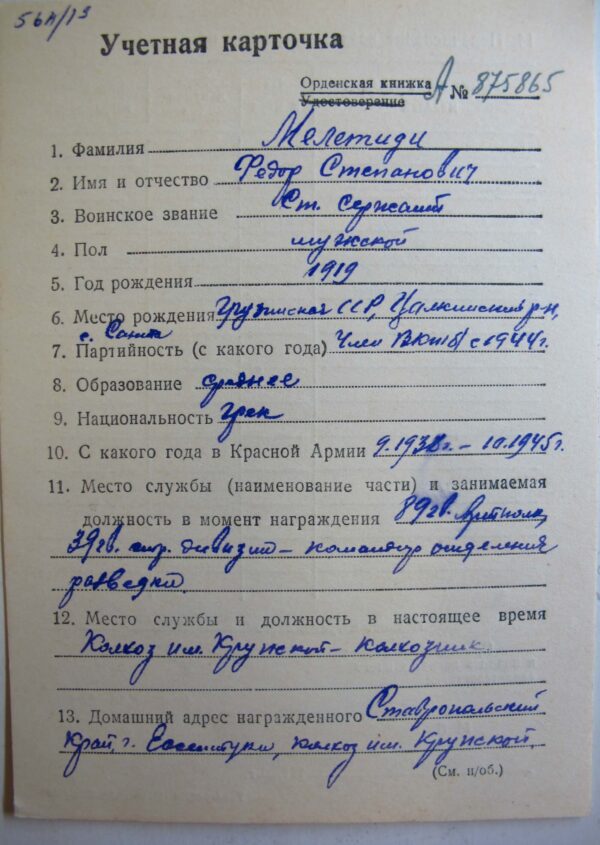 56н/13
Учетная карточка
Орденская книжка А № 875865
Удостоверение
1. Фамилия Мелетиди
2. Имя и отчество Федор Степанович
3. Воинское звание Ст. сержант
4. Пол мужской
5. Год рождения 1919
6. Место рождения Грузинская ССР, Цалкинский р-н,
с. Санта
7. Партийность (с какого года) Член ВКП(б) с 1944 г.
8. Образование среднее
9. Национальность грек
10. С какого года в Красной Армии 9.1938г. – 10.1945г.
11. Место службы (наименование части) и занимаемая
должность в момент награждения 89 гв. артполк,
39 гв. стр. дивизии – командир отделения
разведки.
12. Место службы и должность в настоящее время
Колхоз им. Крупской – колхозник.
13. Домашний адрес награжденного Ставропольский
край, г. Ессентуки, колхоз им. Крупской.
(См. н/об.)